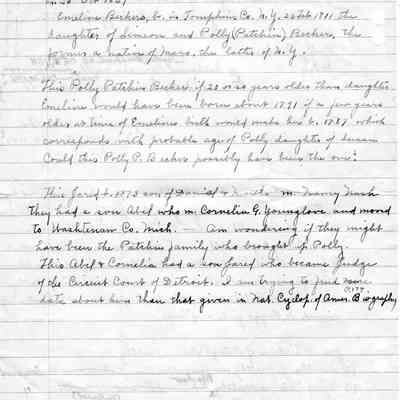 Emeline Beckers, b. in Tompkins Co. N.Y. 1811 the
daughter of Simeon and Polly (Patchin) Beckers, the
former a native of Mass. the latter of N.Y.
This Polly Patchin Beckers if 20 or so years older than daughter
Emeline would have been born about 1791 if a few years
older at time of Emelines birth would make her b. 1787 which
corresponds with probable age of Polly daughter of
Could this Polly P. Beckers possibly have been the one?
This Jared b. 1773 son of Daniel & m. Nash
They had a son Abel who m. Cornelia G. Younglove and moved
to Washtenaw Co. Mich. — Am wondering if they might
have been the Patchin family who brought up Polly.
This Abel & Cornelia had a son Jared who became Judge
of the Circuit Court of Detroit. I am trying to find more
data about him than that given in Nat. Cyclop. of Amer. Biography